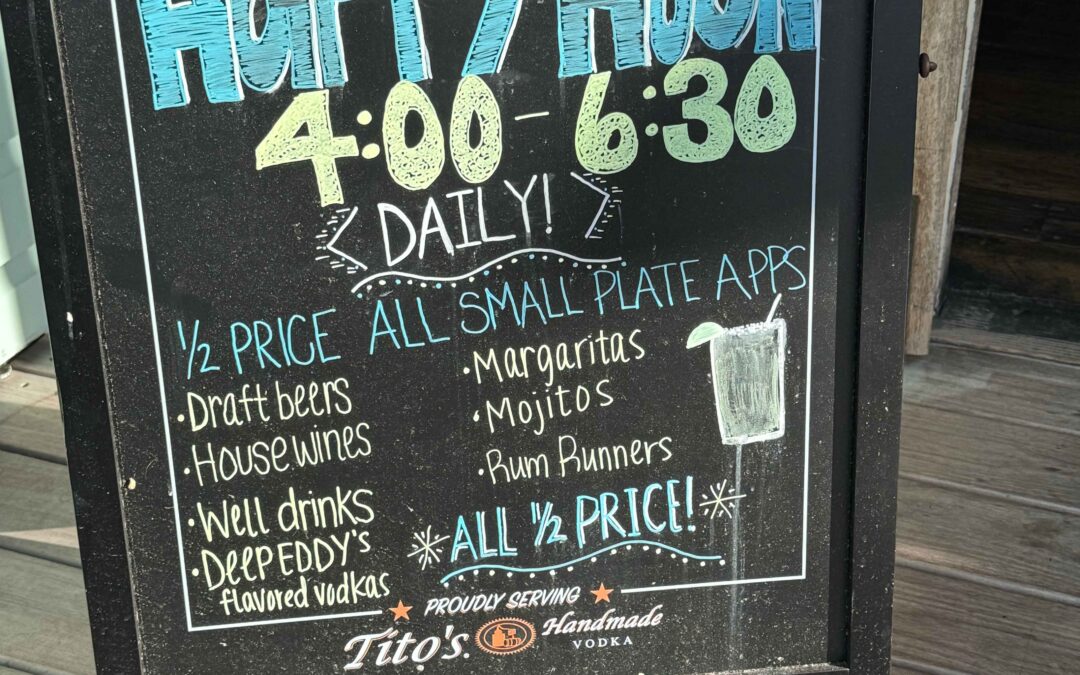 HAPPY HOUR
4:00 - 6:30
DAILY!
1/2 PRICE ALL SMALL PLATE APPS
• Draft beers
• House wines
• Well drinks
• Deep EDDY's
flavored vodkas
• Margaritas
• Mojitos
• Rum Runners
ALL 1/2 PRICE!
PROUDLY SERVING
Tito's Handmade
VODKA